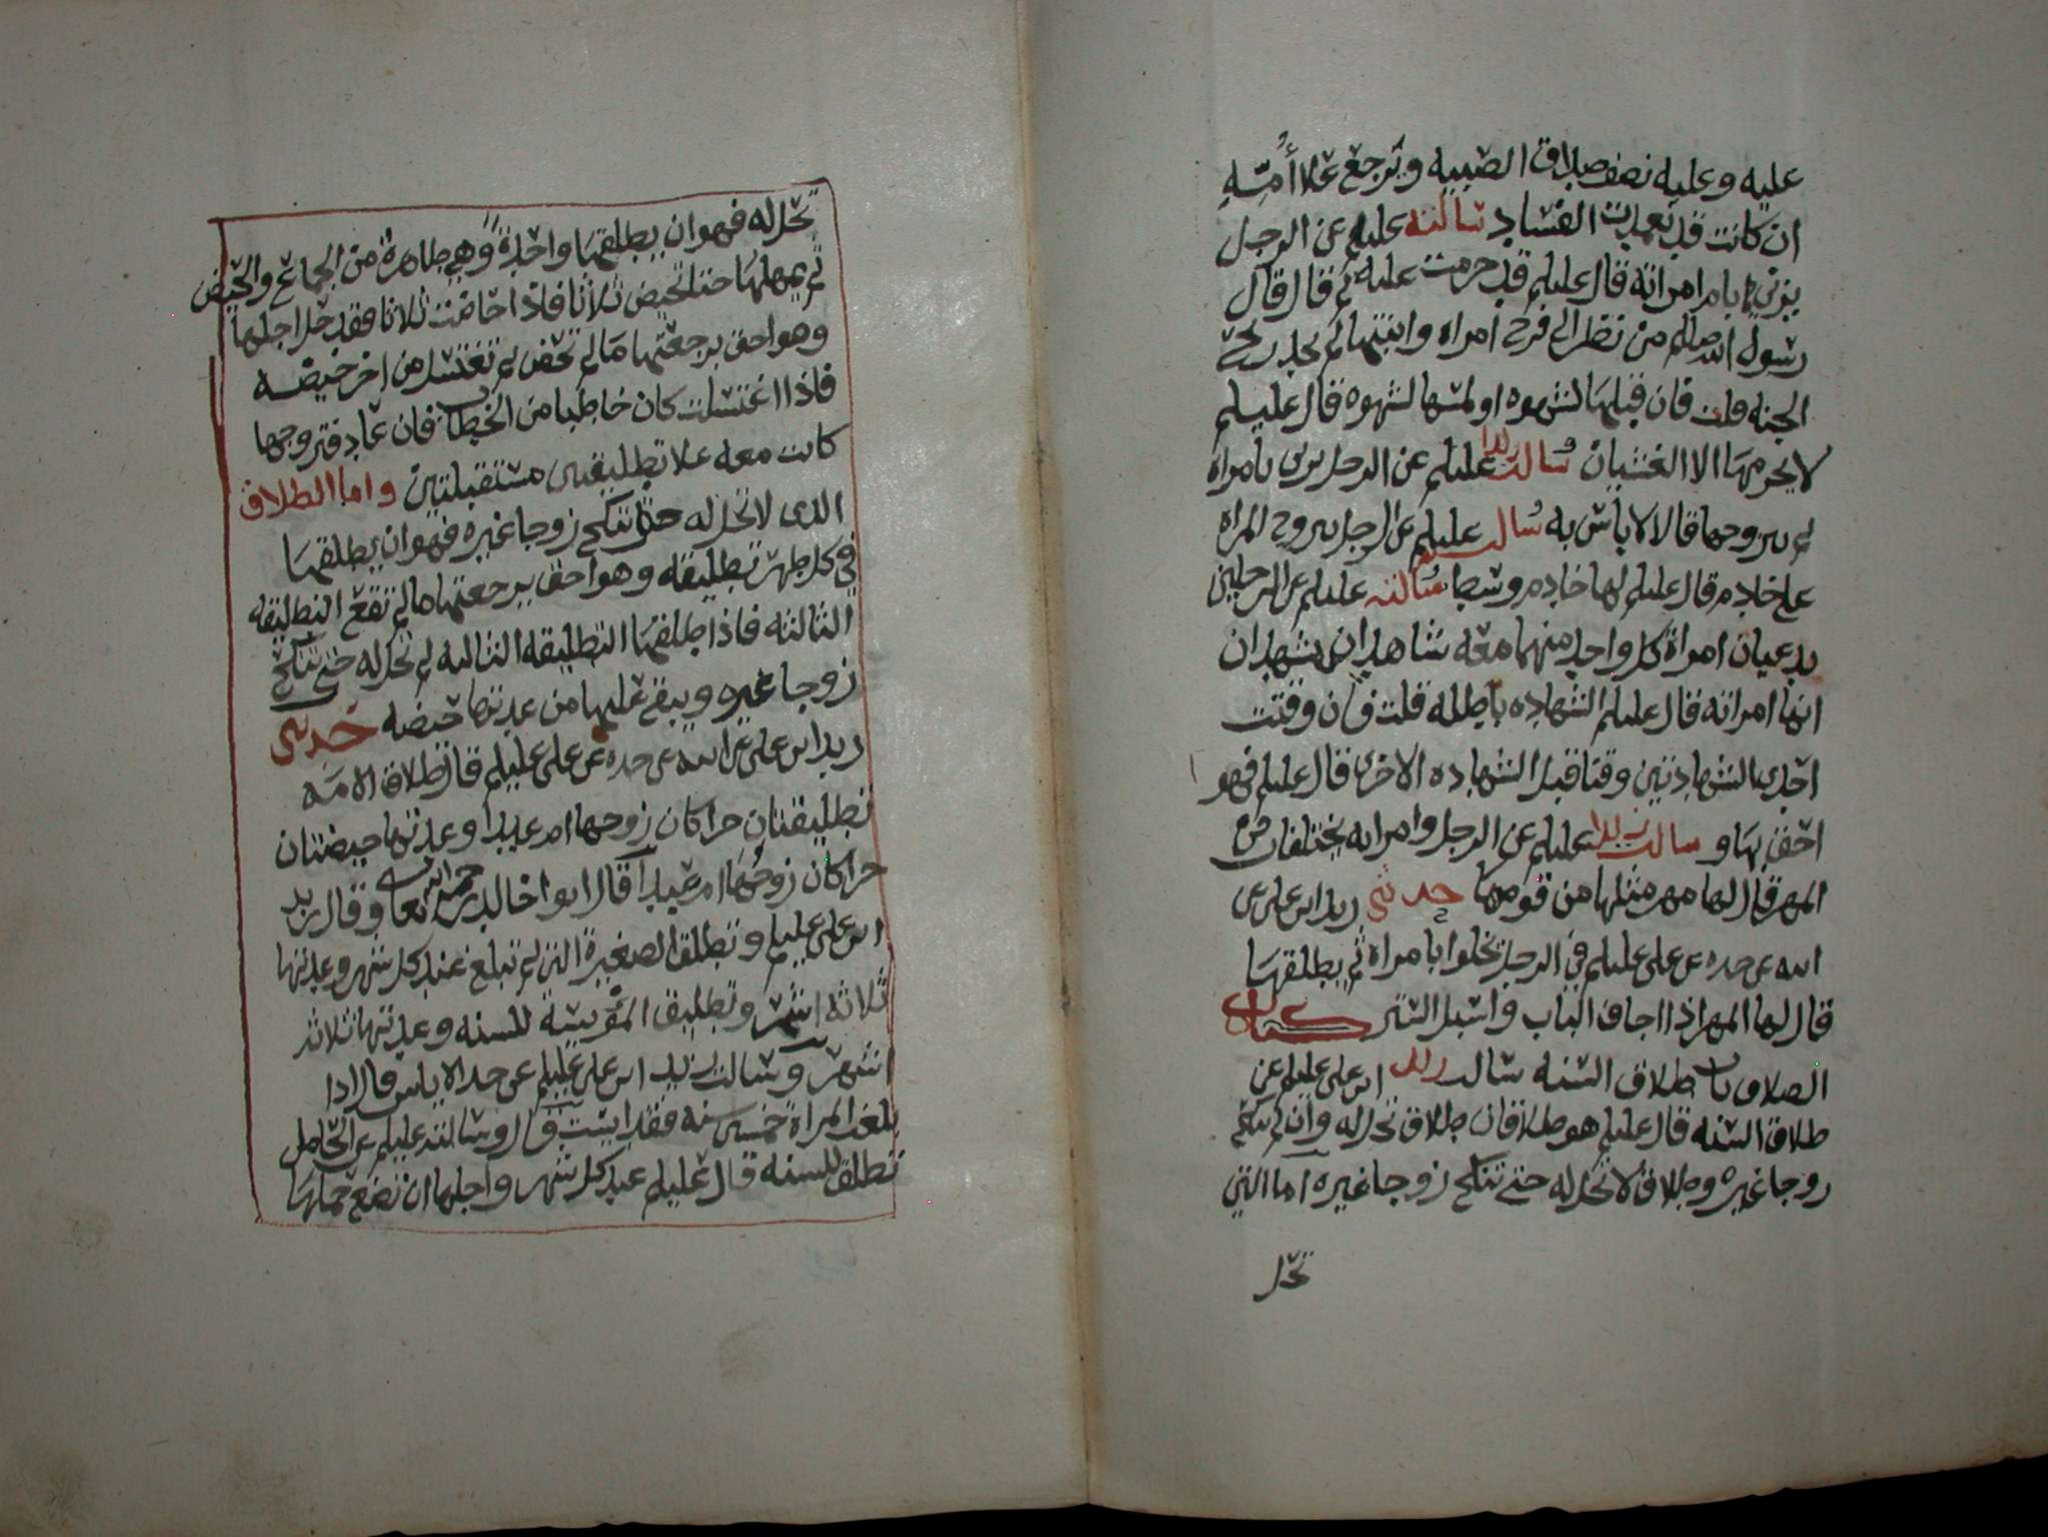 عليه وعليه نصف صداق الصبيه ويرجع علا أمته
ان كانت قد تعمدت الفساد سالته عليلم عن الرجل
يزني بام امراته قال عليلم قد حرمت عليه ثم قال قال
رسول الله صللم من نظر الى فرج امراه وابنتها لم يجد ريح
الجنه قلت فان قبلها لشهوه او لمسها لشهوه قال عليلم
لا يحرمها الا الغشيان سالت زيدا عليلم عن الرجل يزني بامراة
ثم يتزوجها قال لا باس به سالت عليلم عن الرجل يتزوج المراه
على خادم قال عليلم لها خادم وسط سالته عليلم عن الرجلين
يدعيان امراة كل واحد منهما معه شاهدان يشهدان
انها امراته قال عليلم الشهاده باطله قلت فان وقتت
احدى الشهادتين وقتا قبل الشهاده الاخرى قال عليلم فهو
احق بها و سالت زيدا عليلم عن الرجل وامراته يختلفان في
المهر قال لها مهر مثلها من قومها حدثني زيد ابن على عن
ابيه عن جده عن على عليلم في الرجل يخلوا بامراة ثم يطلقها
قال لها المهر اذا اجاف الباب واسبل الستر كتاب
الطلاق باب طلاق السنه سالت زيد ابن على عليلم عن
طلاق السنه قال عليلم هو طلاقان طلاق تحل له وان لم تنكح
زوجا غيره وطلاق لا تحل له حتى تنكح زوجا غيره اما التي
تحل
تحل له فهو ان يطلقها واحدة وهي طاهرة من الجماع والحيض
ثم يمهلها حتا تحيض ثلاثا فاذا حاضت ثلاثا فقد حل اجلها
وهو احق برجعتها ما لم تحض ثم تغتسل من اخر حيضه
فاذا اغتسلت كان خاطبا من الخطاب فان عاد فتزوجها
كانت معه علا تطليقتين مستقبلتين واما الطلاق
الذى لا تحل له حتا تنكح زوجا غيره فهو ان يطلقها
في كل طهر تطليقه وهو احق برجعتها ما لم تقع التطليقه
الثالثه فاذا طلقها التطليقه الثالثه لم تحل له حتى تنكح
زوجا غيره ويبقى عليها من عدتها حيضه حدثني
زيد ابن على عن ابيه عن جده عن على عليلم قال طلاق الامه
تطليقتان حرا كان زوجها ام عبدا وعدتها حيضتان
حرا كان زوجها ام عبدا قال ابوا خالد رحمه الله تعا وقال زيد
ابن على عليلم وتطلق الصغيرة التي لم تبلغ عند كل شهر وعدتها
ثلاثه اشهر وتطليق المؤيسة للسنه وعدتها ثلاثه
اشهر وسالت زيد ابن على عليلم عن حد الاياس قال اذا
بلغت المراة خمسين سنه فقد ايست قال وسالته عليلم عن الحامل
تطلق للسنه قال عليلم عند كل شهر واجلها ان تضع حملها